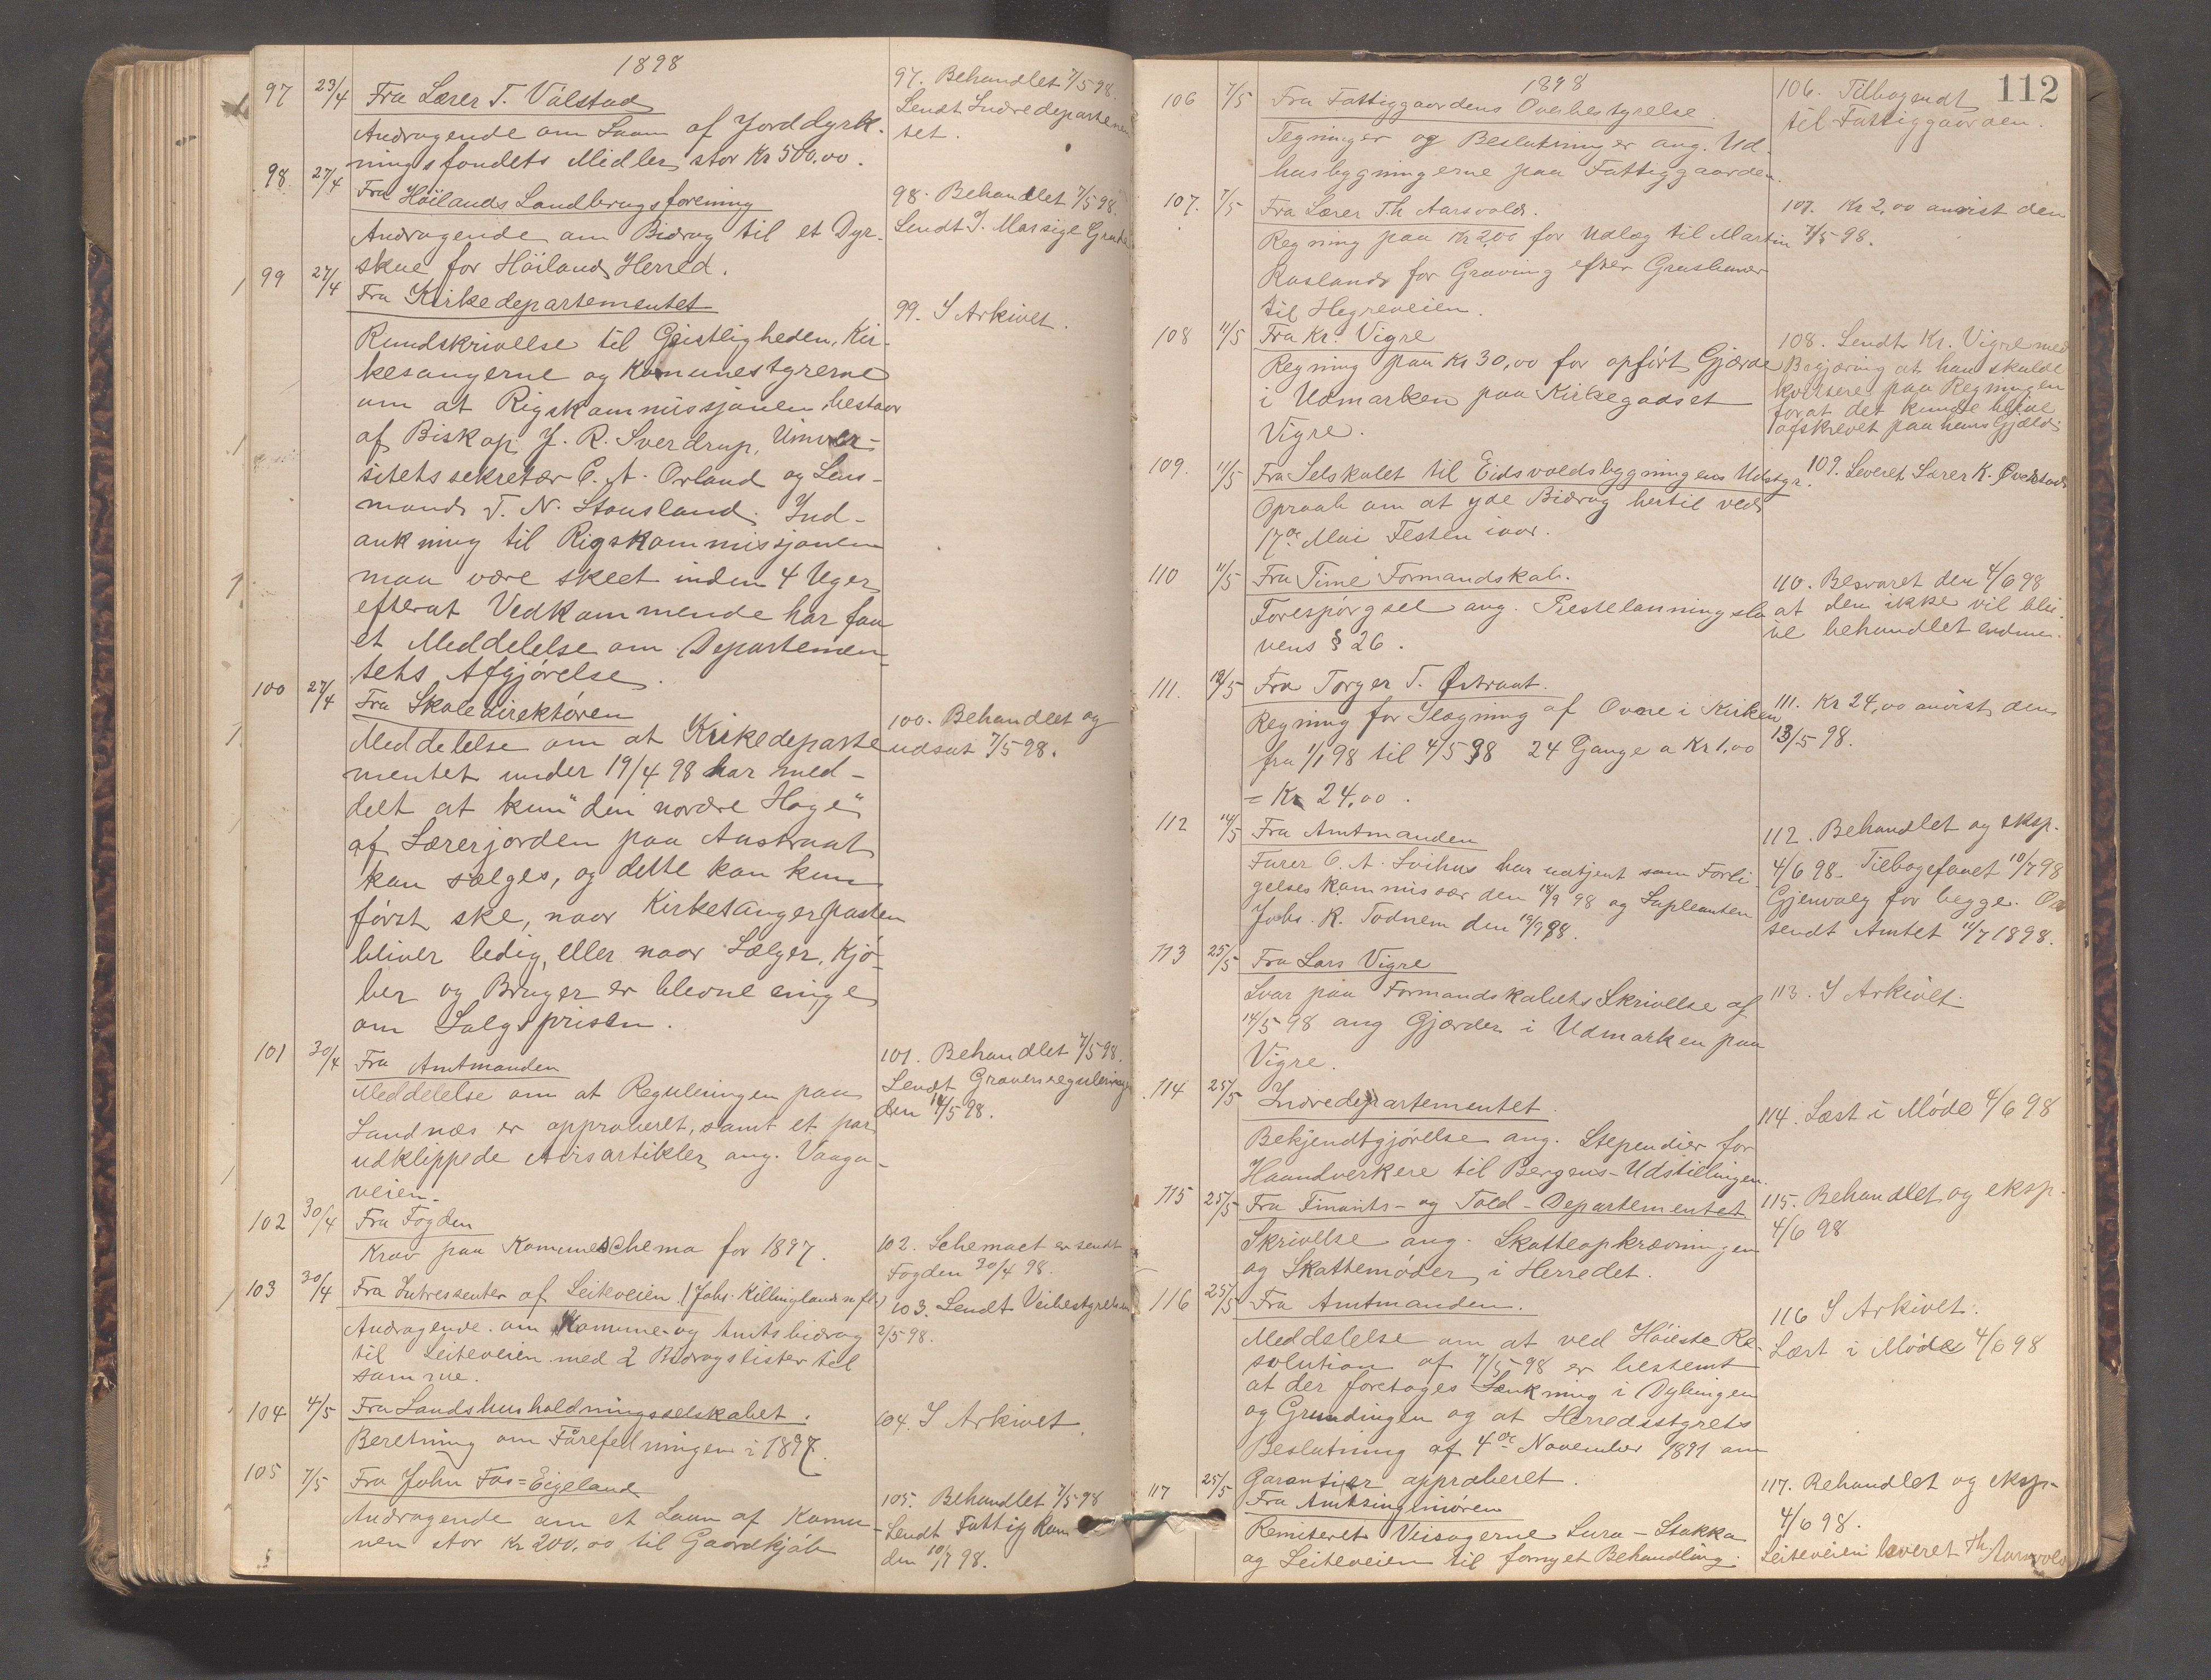 1898
97 23/4 Fra Lærer T. Válstad
Andragende om Laan af Jorddyrk-
ningsfondets Midler stor Kr 500,00.
97. Behandlet 7/5 98.
Sendt Indredepartemen
tet.
98. 27/4 Fra Höilands Landbrugsforening
Andragende om Bidrag til et Dyr-
skue for Höiland Herred.
98. Behandlet 7/5 98.
Sendt
99 27/4 Fra Kirkedepartementet
Rundskrivelse til Geistligheden, Kir-
kesangerne og Komunestyrerne
om at Rigskommissjonen bestaar
af Biskop J. R. Sverdrup, Univer-
sitetssekretær C. A. Orland og Lens-
mand T. N. Stousland. Ind-
ankning til Rigskommissjonen
maa være skeet inden 4 Uger
efterat Vedkommende har faa
et Meddelelse om Departemen-
tets Afgjörelse.
99. I Arkivet.
100 27/4 Fra Skoledirektören
Meddelelse om at Kirkedeparte
mentet under 19/4 98 har med-
delt at kun "den nordre Hage"
af Lærerjorden paa Austraat
kan sælges, og dette kan kun
först ske, naar Kirkesangerposten
bliver ledig, eller naar Sælger, Kjö-
ber og Bruger er blevne enige
om Salgsprisen.
100. Behandlet og
udsat 7/5 98.
101 30/4 Fra Amtmanden
Meddelelse om at Reguleringen paa
Sandnæs er approberet, samt et par
udklippede Avisartikler ang. Vaaga-
veien.
101. Behandlet 7/5 98.
Sendt
den 14/5 98.
102 30/4 Fra Fogden
Krav paa Komuneschema for 1897.
102. Schemaet er sendt
Fogden 30/4 98.
103 30/4 Fra Intressenter af Leiteveien (Johs. Killingland m fl.)
Andragende om Komune- og Amtsbidrag
til Leiteveien med 2 Bidragslister til
samme.
103. Sendt Veibestyrelsen
2/5 98.
104 4/5 Fra Landshusholdningsselskabet.
Beretning om Fårefedningen i 1897.
104. I Arkivet.
105 7/5 Fra John Fos=Eigeland
Andragende om et Laan af Komu-
nen stor Kr 200,00 til Gaardkjöb
105. Behandlet 7/5 98
Sendt Fattig Kom
den 10/7 98.
112
1898
106 7/5 Fra Fattiggaardens Overbestyrelse.
Tegninger og Beslutninger ang. Ud-
husbygningerne paa Fattiggaarden.
106. Tilbagesendt
til Fattiggaarden.
107. 7/5 Fra Lærer Th Aarsvold.
Regning paa Kr 2,00 for Udlæg til Martin
Rosland for Graving efter Grushaver
til Hegreveien.
107. Kr 2,00 anvist den
7/5 98.
108 11/5 Fra Kr. Vigre
Regning paa Kr 30,00 for opfört Gjærde
i Udmarken paa Kirkegodset
Vigre.
108. Sendt Kr. Vigre med
Begjæring at han skulde
kvittere paa Regningen
forat det kunde blive
afskrevet paa hans Gjæld.
109. 11/5 Fra Selskabet til Eidsvoldsbygningens Udstyr.
Opraab om at yde Bidrag hertil ved
17de Mai Festen iaar.
109. Leveret Lærer K. Øverstad
110 11/5 Fra Time Formandskab.
Forespörgsel ang. Præstelönningslo
vens § 26.
110. Besvaret den 4/6 98
at den ikke vil bli-
ve behandlet endnu.
111. 12/5 Fra Torger T. Østraat.
Regning for Ilægning af Ovne i Kirken
fra 1/1 98 til 4/5 98 24 Gange a Kr 1,00
= Kr 24,00.
111. Kr 24,00 anvist den
13/5 98.
112 14/5 Fra Amtmanden
Furer C. A. Svihus har udtjent som Forli-
gelseskommissær den 18/9 98 og Supleanten
Johs. R. Todnem den 19/9 98.
112. Behandlet og eksp.
4/6 98. Tilbagefaaet 10/7 98
Gjenvalg for begge.
sendt Amtet 11/7 1898.
113 25/5 Fra Lars Vigre
Svar paa Formandskabets Skrivelse af
14/5 98 ang Gjærder i Udmarken paa
Vigre.
113. I Arkivet.
114 25/5 Indredepartementet.
Bekjendtgjörelse ang. Stipendier for
Haandverkere til Bergens-Udstillingen.
114. Læst i Möde 4/6 98
115 25/5 Fra Finants- og Told-Departementet
Skrivelse ang. Skatteopkrævningen
og Skattemöder i Herredet.
115. Behandlet og eksp.
4/6 98
116 25/5 Fra Amtmanden.
Meddelelse om at ved Höieste Re-
solution af 7/5 98 er bestemt
at der foretages Sænkning i Dybingen
og Grundingen og at Herredsstyrets
Beslutning af 4de November 1891 om
Garantier approberet.
116 I Arkivet.
Læst i Möde 4/6 98
117 25/5 Fra Amtsingeniören
Remiteret Veisagerne Lura-Stokka
og Leiteveien til fornyet Behandling.
117. Behandlet og eksp.
4/6 98.
Leiteveien leveret Th. Aarsvold